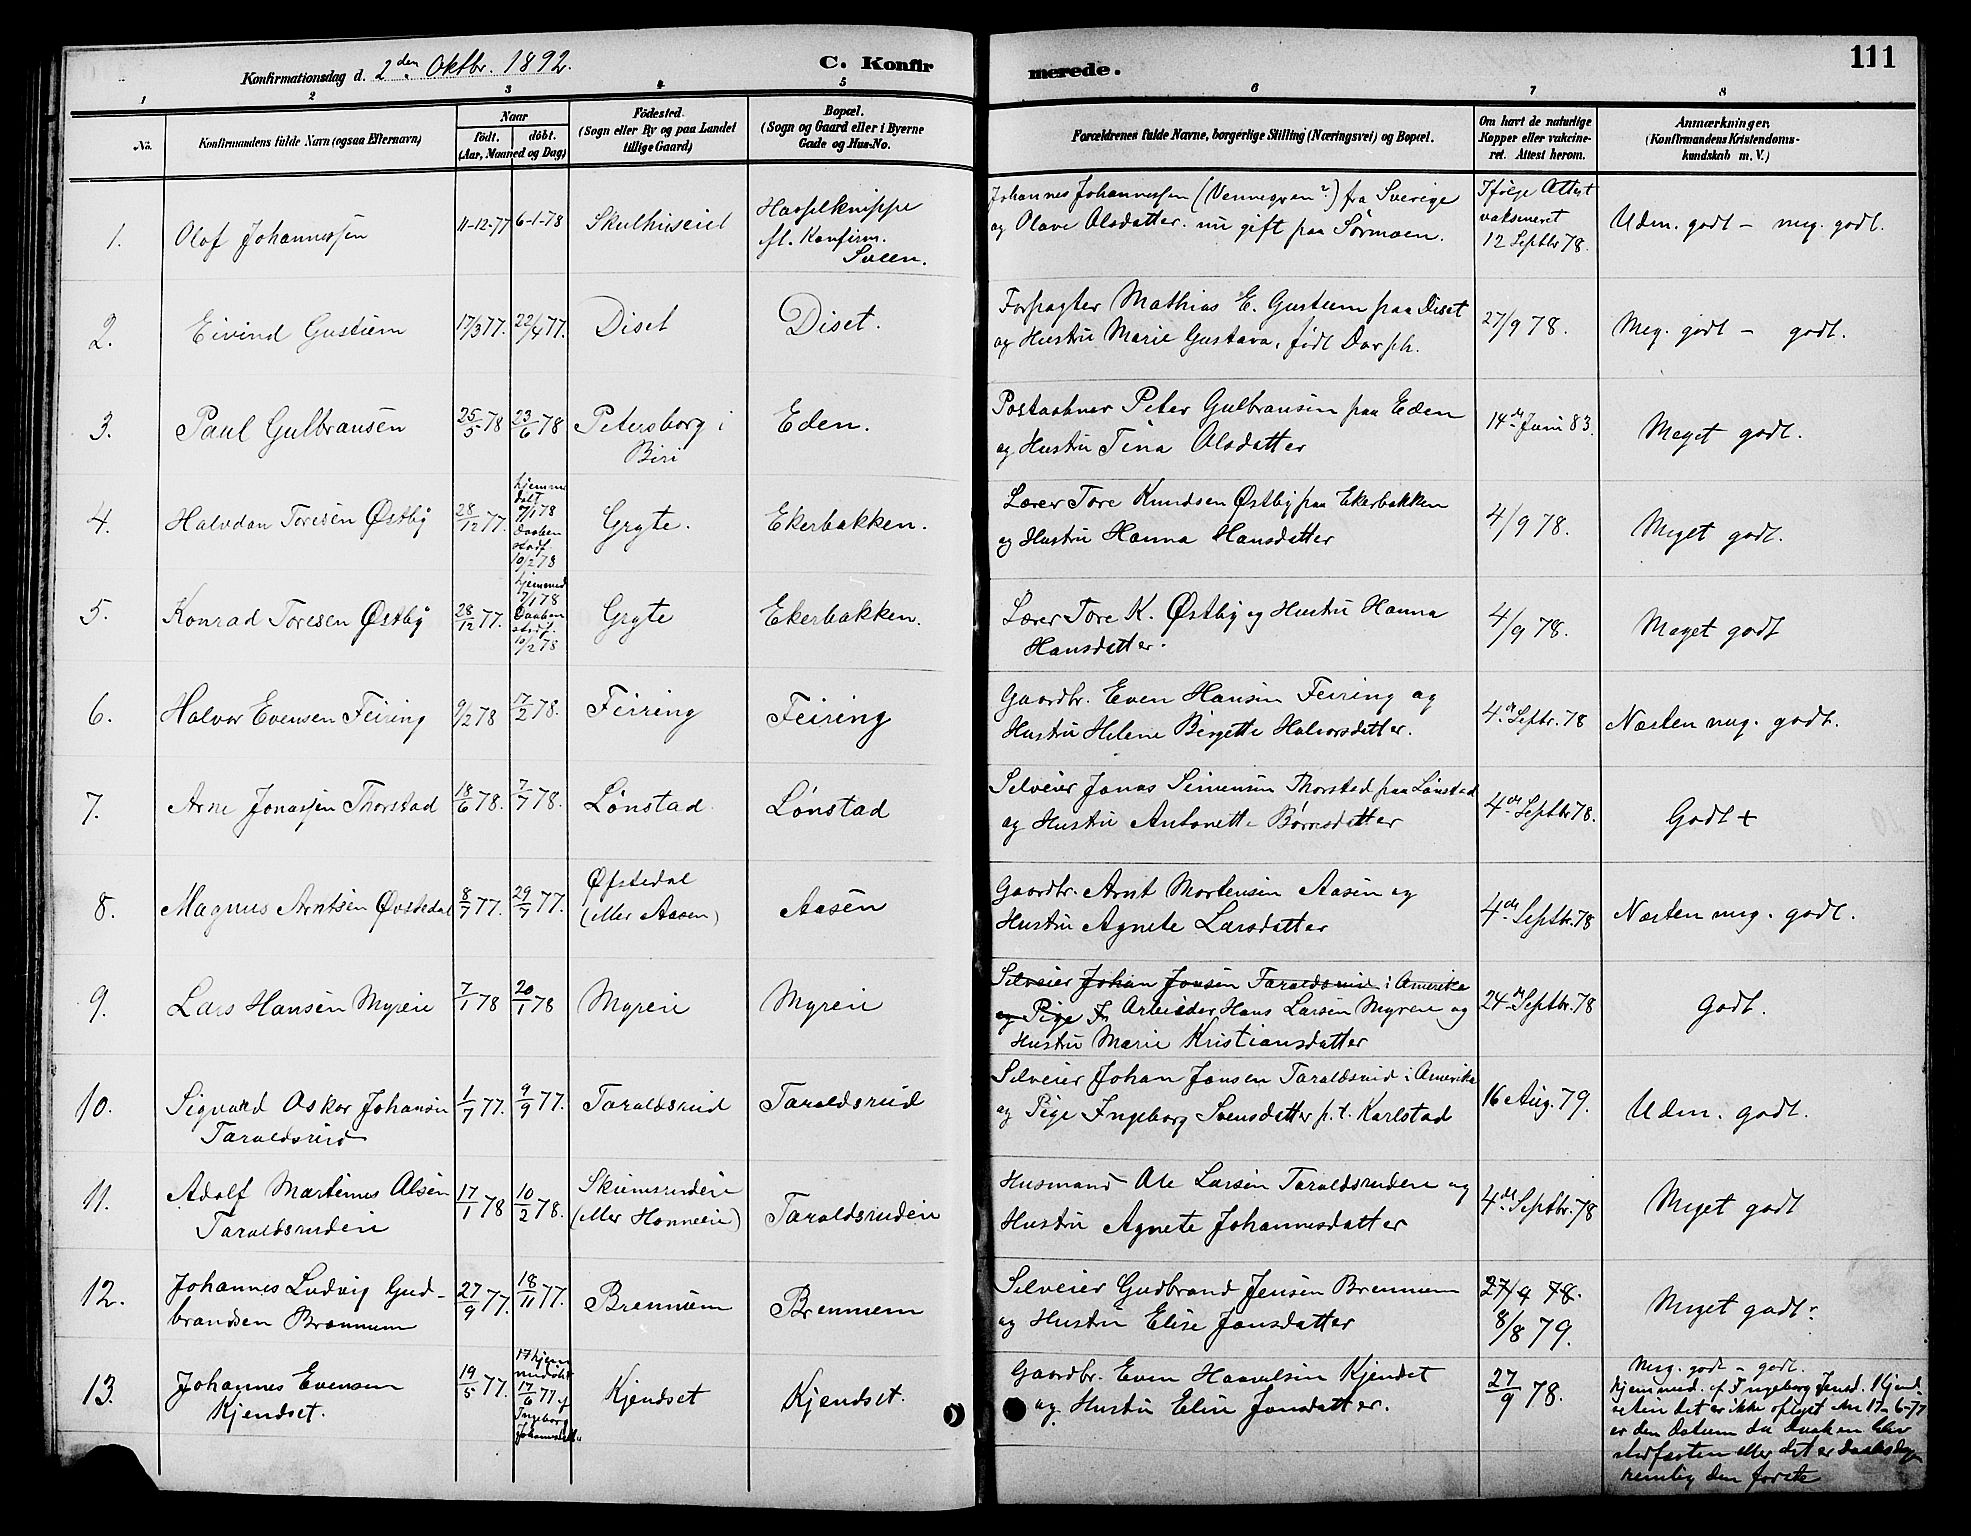 Konfirmationsdag d. 2den Oktbr. 1892.
C. Konfir
merede.
111
1
2
3
4
5
6
7
8
No.
Konfirmandens fulde Navn (ogsaa Efternavn)
Naar
født. døbt.
(Aar, Maaned og Dag)
Födested.
(Sogn eller By og paa Landet
tillige Gaard)
Bopæl.
(Sogn og Gaard eller i Byerne
Gade og Hus-No.
Forældrenes fulde Navne, borgerlige Stilling (Næringsvei) og Bopæl.
Om havt de naturlige
Kopper eller vakcine-
ret. Attest herom.
Anmærkninger,
(Konfirmandens Kristendoms-
kundskab m. V.)
1.
Olof Johannessen
11-12-77
6-1-78
Skulhuseiet
Hasselknippe
fl. Konfirm.
Sveen.
Johannes Johannessen (Vennegren?) fra Sverige
og Olave Olsdatter. nu gift paa Sørmoen.
Ifølge Attest
vaksineret
12 Septbr 78.
Udm. godt – meg. godt.
2.
Eivind Gustum
17/3 77.
22/4 77.
Diset
Diset.
Forpagter Mathias E. Gustum paa Diset
og Hustru Marie Gustava, født Dorph.
27/9 78.
Meg. godt – godt.
3.
Paul Gulbransen
25/5 78
23/6 78
Petersborg i
Biri
Eden.
Postaabner Peter Gulbransen paa Eden
og Hustru Tina Olsdatter
14de Juni 83.
Meget godt.
4.
Halvdan Toresen Østby
28/12 77.
hjemme
døbt
7/1 78
Daaben
stadf.
10/2 78
Gryte.
Ekerbakken.
Lærer Tore Knudsen Østby paa Ekerbakken
og Hustru Hanna Hansdatter
4/9 78.
Meget godt.
5.
Konrad Toresen Østby
28/12 77.
hjemmed
7/1 78
Daaben
stadf.
10/2 78
Gryte
Ekerbakken.
Lærer Tore K. Østby og Hustru Hanna
Hansdatter.
4/9 78.
Meget godt
6.
Halvor Evensen Feiring
9/2 78
17/2 78.
Feiring
Feiring
Gaardbr. Even Hansen Feiring og
Hustru Helene Birgitte Halvorsdatter.
4de Septbr. 78
Næsten meg. godt.
7.
Arne Jonassen Thorstad
18/6 78.
7/7 78.
Lønstad
Lønstad
Selveier Jonas Simensen Thorstad paa Lønstad
og Hustru Antonette Børresdatter
4de Septbr 78.
Godt +
8.
Magnus Arntsen Øvstedal
8/7 77.
29/7 77.
Øfstedal
(eller Aasen)
Aasen
Gaardbr. Arnt Mortensen Aasen og
Hustru Agnete Larsdatter
4de Septbr. 78
Næsten meg. godt.
9.
Lars Hansen Myren
7/1 78
20/1 78
Myren
Myren
Selveier Johan Jonsen Taraldsrud i Amerika
og Pige I. Arbeider Hans Larsen Myren og
Hustru Marie Kristiansdatter
24de Septbr. 78
Godt.
10.
Sigvard Oskar Johansen
Taraldsrud
1/7 77.
9/9 77.
Taraldsrud
Taraldsrud
Selveier Johan Jonsen Taraldsrud i Amerika
og Pige Ingeborg Svensdatter p. t. Karlstad
16 Aug. 79.
Udm. godt.
11.
Adolf Martinus Olsen
Taraldsruden
17/1 78
10/2 78.
Skiumsruden
(eller Honneeie)
Taraldsruden
Husmand Ole Larsen Taraldsruden og
Hustru Agnete Johannesdatter
4de Septbr. 78
Meget godt
12.
Johannes Ludvig Gud-
brandsen Brennum
27/9 77.
18/11 77.
Brennum
Brennum
Selveier Gudbrand Jensen Brennum
og Hustru Elise Jonsdatter
27/9 78.
8/8 79.
Meget godt.
13.
Johannes Evensen
Kjendset.
19/5 77.
17 hjem
17/6 77 af
Ingeborg
Kjendset
Kjendset.
Gaardbr. Even Haavelsen Kjendset
og Hustru Eline Jonsdatter.
27/9 78.
Meg. godt – godt.
hjemmed. af Ingeborg Jensd. Kjend-
seten det er ikke oplyst om 17-6-77
er den Datum da daaben blev
stadfæsten eller det er daabsdagen
nemlig den første